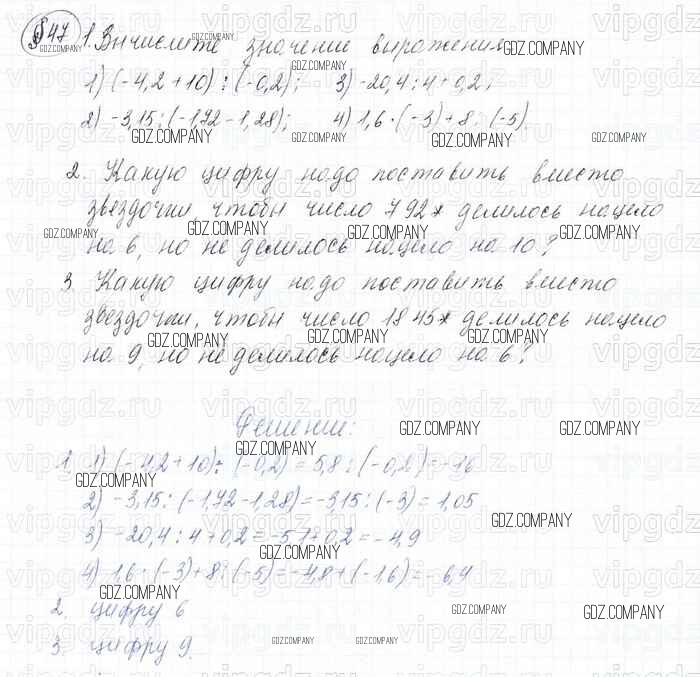 §47 1. Вычислите значение выражения
1) (-4,2+10) : (-0,2); 3) -20,4 : 4+0,2;
2) -3,15 : (-1,72-1,28); 4) 1,6 · (-3)+8 : (-5).
2. Какую цифру надо поставить вместо
звездочки, чтобы число 792* делилось нацело
на 6, но не делилось нацело на 10?
3. Какую цифру надо поставить вместо
звездочки, чтобы число 1845* делилось нацело
на 9, но не делилось нацело на 6?
Решение:
1. 1) (-4,2+10) : (-0,2)=5,8 : (-0,2)=-16
2) -3,15 : (-1,72-1,28)=-3,15 : (-3)=1,05
3) -20,4 : 4+0,2=-5,1+0,2=-4,9
4) 1,6 · (-3)+8 : (-5)=-4,8+(-1,6)=-6,4
2. цифру 6
3. цифру 9.
GDZ.COMPANY
vipgdz.ru